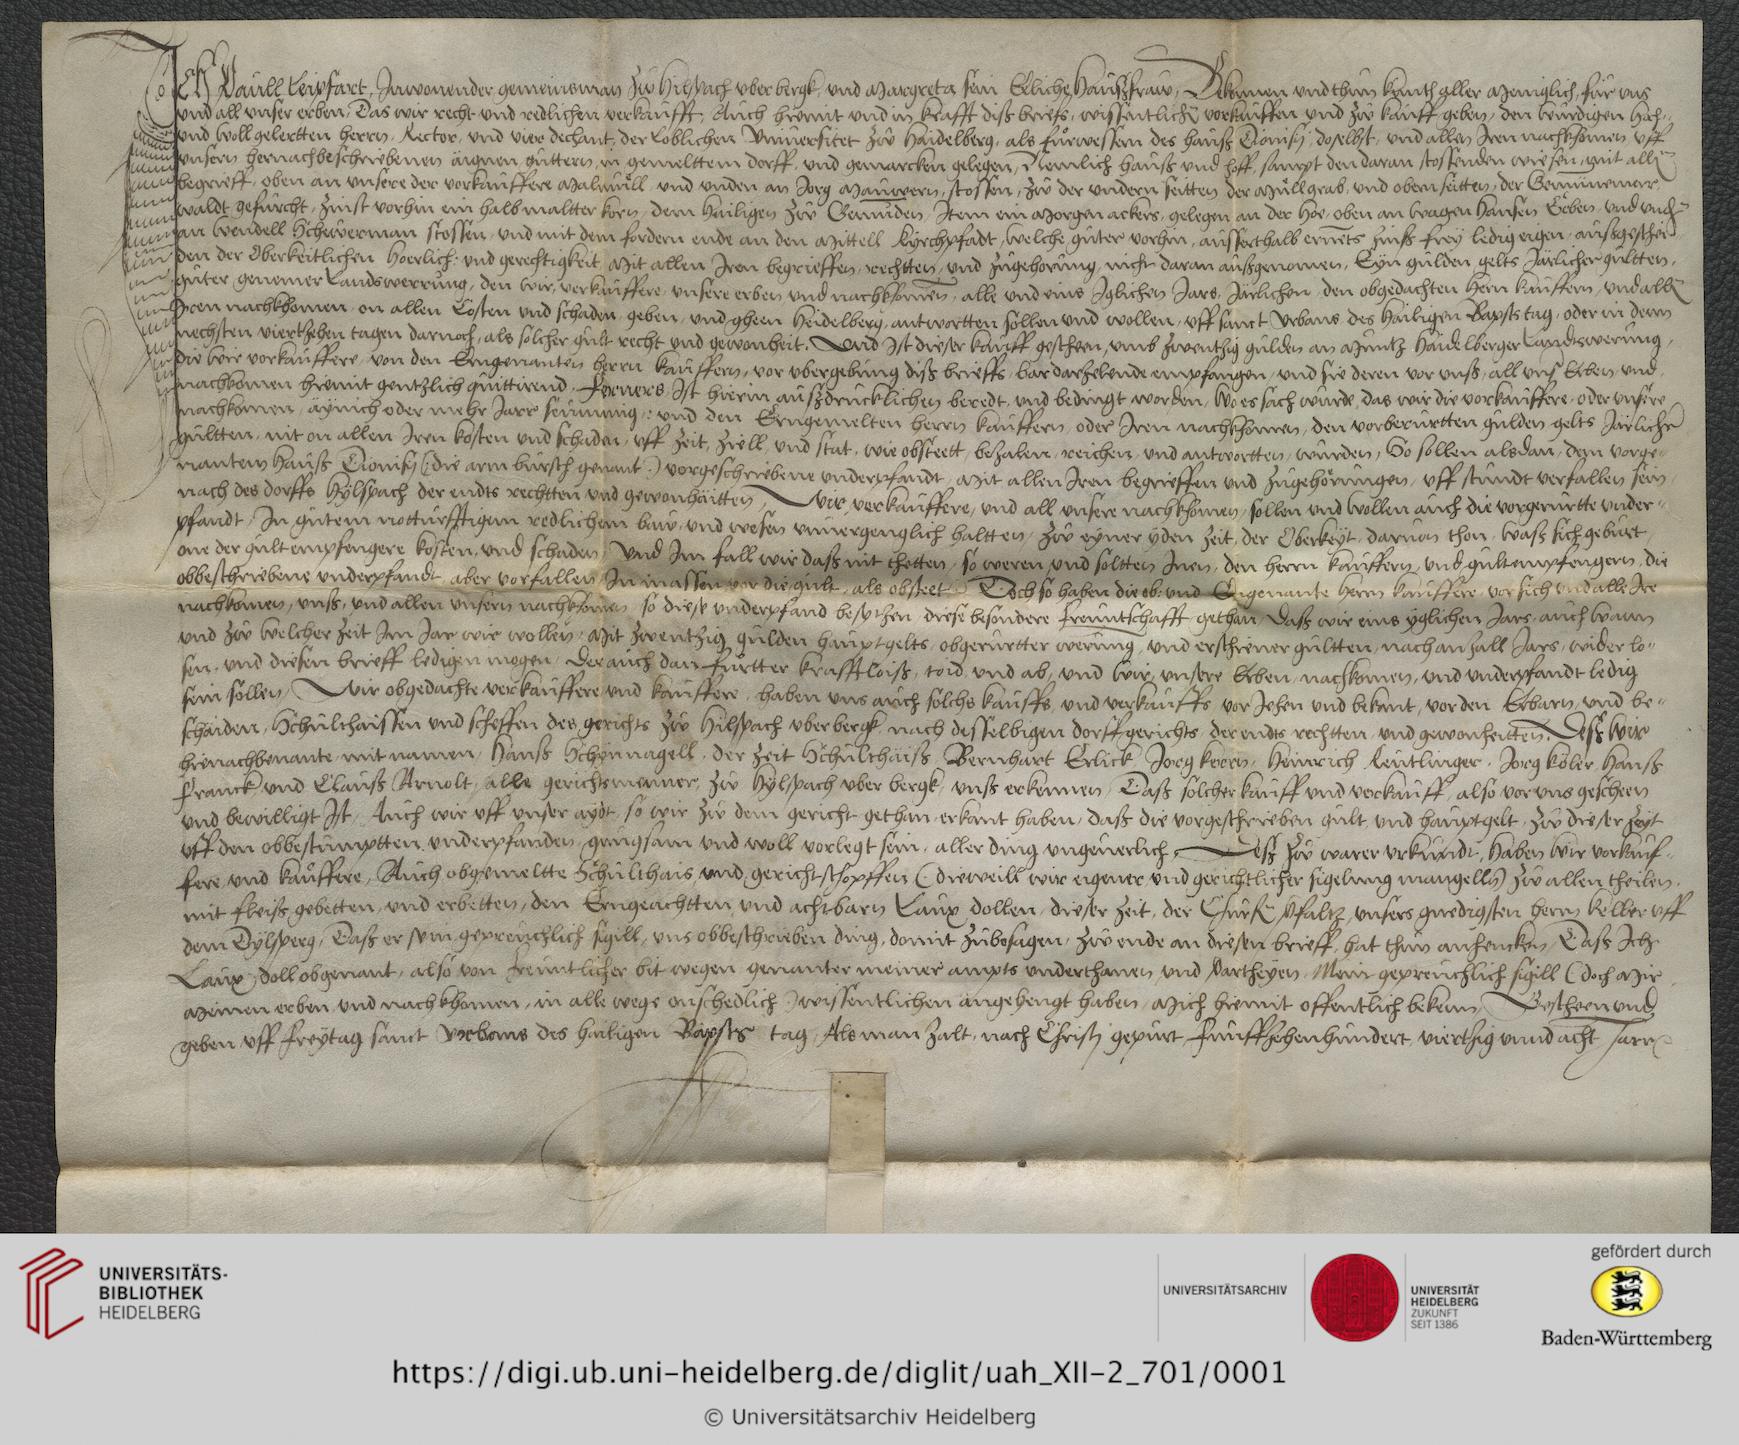 Ich Paull Leipfart, Inwonender gemeinsman zů Hilspach uber bergk, und Margreta sein Eliche Haußfraw, Bekennen und thun kunth aller Meniglich, für uns
und all unser erben, Das wir recht und redlichen verkaufft, Auch hiemit und in krafft diß briefs, wissentlich verkauffen und zů kauff geben, den wurdigen Hoch-
und wollgelertten herrn, Rector, und vier dechant, der Loblichen Universitet zů Haidelberg, als fürwessern des hauß Dionisij doselbst, und allen Iren nachkhomen uff
unsern hernachbeschriebenen aignen güttern, in gemelttem dorff, und gemarcken gelegen, Nemlich hauß und hoff, sampt den daran stossenden wiesen, mit all
begrieff, oben an unsere der vorkauffere Malmüll, und unden an Jorg Mauwern, stossen, zů der undern seitten der müllgrab, und obern seitten, der Gemünemer
waldt gefurcht, zinst vorhin ein halb maltter korn, dem hailigen zů Gemünden, Item ein Morgen ackers, gelegen an der Hoe, oben an wagen Hansen Erben, und und
an Wendell Schewerman stossen, und mit dem fordern ende an den Mittell kyrchpfadt, welche güter vorhin, ausserthalb ernets zinß frey ledig eigen, außgeschei-
den der Oberkeitlichen Hoerlich: und gerechtigkeit, Mit allen Iren begrieffen, rechtten, und zugehorung, nicht daran außgenomen, Eyn gulden gelts Järlicher gültten,
güter genemer Landswerrung, den wir, verkauffere, unsere erben und nachkomen, alle und eins Iglichen Jars, Järlichen, den obgedachten Hern kauffern, und all
Iren nachkhomen, on allen Costen und schaden, geben, und gheen Heidelberg, antwortten sollen und wollen, uff sanct Urbans des Hailigen Bapsts tag, oder in denn
nechsten viertzehen tagen darnoch, als solcher gult recht und gewonheit. Und Ist dieser kauff gescheen, umb zwentzig gulden an Müntz Haidelberger Landtswerung,
die wir vorkauffere, von den Ergenanten herrn kauffern, vor ubergebung diß brieffs, bar darzelende empfangen, und sie deren vor unß, all uns Erben und
nachkomen hiemit gentzlich quittirend. Ferners, Ist hierin außdrucklichen beredt, und bedingt worden, Wo es sach würde, das wir die vorkauffere, oder unsere
nachkomen, äynich oder mehr Jarr seümmig, und den Erngemelten herrn kauffern, oder Iren nachkhomen, den vorberürtten gulden gelts Järlicher
gültten, nit on allen Iren kosten und schaden, uff zeit, ziell, und stat, wie obsteett, bezalen, reichen, und antwortten, würden, So sollen alsdan, dem vorge-
nantem Hauß Dionisij (: die arm bursch genant :) vorgeschriebene underpfandt, Mit allen Iren begrieffen und zugehörungen, uff stundt verfallen sein
nach des dorffs Hylspach der endts rechtten und gewonhäitten, Wir, verkauffere, und all unsere nachkhomen, sollen und wollen auch die vorgerürtte under-
pfandt, In gutem notturfftigem redlichem baw, und wesen unvergenglich haltten, zů eyner yden zeit, der Oberkeyt, darvon thon, waß sich gebürt,
one der gult empfengere kosten, und schaden, Und Im fall wir daß nit thetten, so weren und soltten Inen, den herrn kauffern, und gültempfengern, die
obbeschriebene underpfandt, aber vorfallen, In massen vor die gült, als obsteet. Doch so haben die ob: und Ergenante Herrn kauffere, vor sich und alle Ire
nachkomen, unß, und allen unsern nachkhomen, so diese underpfand besytzen, diese besondere freuntschafft gethan, Daß wir eins yglichen Jars, auch wann
und zů welcher zeit Im Jar wir wollen, Mit zwentzig gulden hauptgelts, obgerürtter werung, und erschiener gültten, nach anzall Jars, wider lo-
sen, und diesen brieff ledigen mogen, der auch dan fürtter krafftloiß, toid, und ab, und wir, unsere Erben, nachkomen, und underpfandt ledig
sein sollen, Wir obgedachte verkauffere und kauffere, haben uns auch solchs kauffs, und verkauffs, vor Jehen und bekant, vor den Erbarn, und be-
schaiden, Schulthaissen und scheffen des gerichts zů Hilspach uber bergk, nach desselbigen dorffgerichts, der endts rechtten, und gewonheitten. Deß wir
hienachbenante, mit namen, Hanß Schonnagell, der zeit Schulthaiß, Bernhart Erlick, Jorg kern, Heinrich Leutlinger, Jorg köler, Hanß
Franck und Clauß Arnolt, alle gerichtsmenner, zů Hylspach uber bergk, unß erkennen, Daß solcher kauff und verkauff, also vor uns gescheen
und bewilligt Ist, Auch wir uff unser aydt, so wir zů dem gericht gethan, erkant haben, daß die vorgeschrieben gült, und hauptgelt, zů dieser zeyt
uff den obbestumptten, underpfanden, gnugsam und woll vorlegt sein, aller ding ungeverlich, Deß zů warer urkundt, haben wir vorkauf-
fere, und kauffere, Auch obgemeltte Schulthais, und gerichtschöpffen (: dieweill wir eigener, und gerichtlicher sigelung mangelln) zů allen theilen,
mit fleiß gebetten, und erbetten, den Erngeachtten, und achtbarn Laux dollen, dieser zeit, der Churf Pfaltz, unsers gnedigsten herrn keller uff
dem Dylsperg, Daß er syn gepreuchlich sigill, uns obbeschrieben ding, domit zubesagen, zů ende an diesen brieff, hat thun anhencken, Daß Ich
Laux doll obgenant, also von freuntlicher bit wegen, genanter meiner ampts underthanen, und Partheyen, Mein gepreuchlich sigill (doch Mir
Meinen erben, und nachkhomen, in alle wege onschedlich) wissentlichen angehengt haben, Mich hiemit offentlich bekenn, Gescheen und
geben, uff freytag sanct Urbans des hailigen Bapsts tag, Als man zalt, nach Christj gepurt, funffzehenhundert, vierthzig unnd acht Jarr
UNIVERSITÄTS-
BIBLIOTHEK
HEIDELBERG
UNIVERSITÄTSARCHIV
UNIVERSITÄT
HEIDELBERG
ZUKUNFT
SEIT 1386
gefördert durch
Baden-Württemberg
https://digi.ub.uni-heidelberg.de/diglit/uah_XII-2_701/0001
© Universitätsarchiv Heidelberg